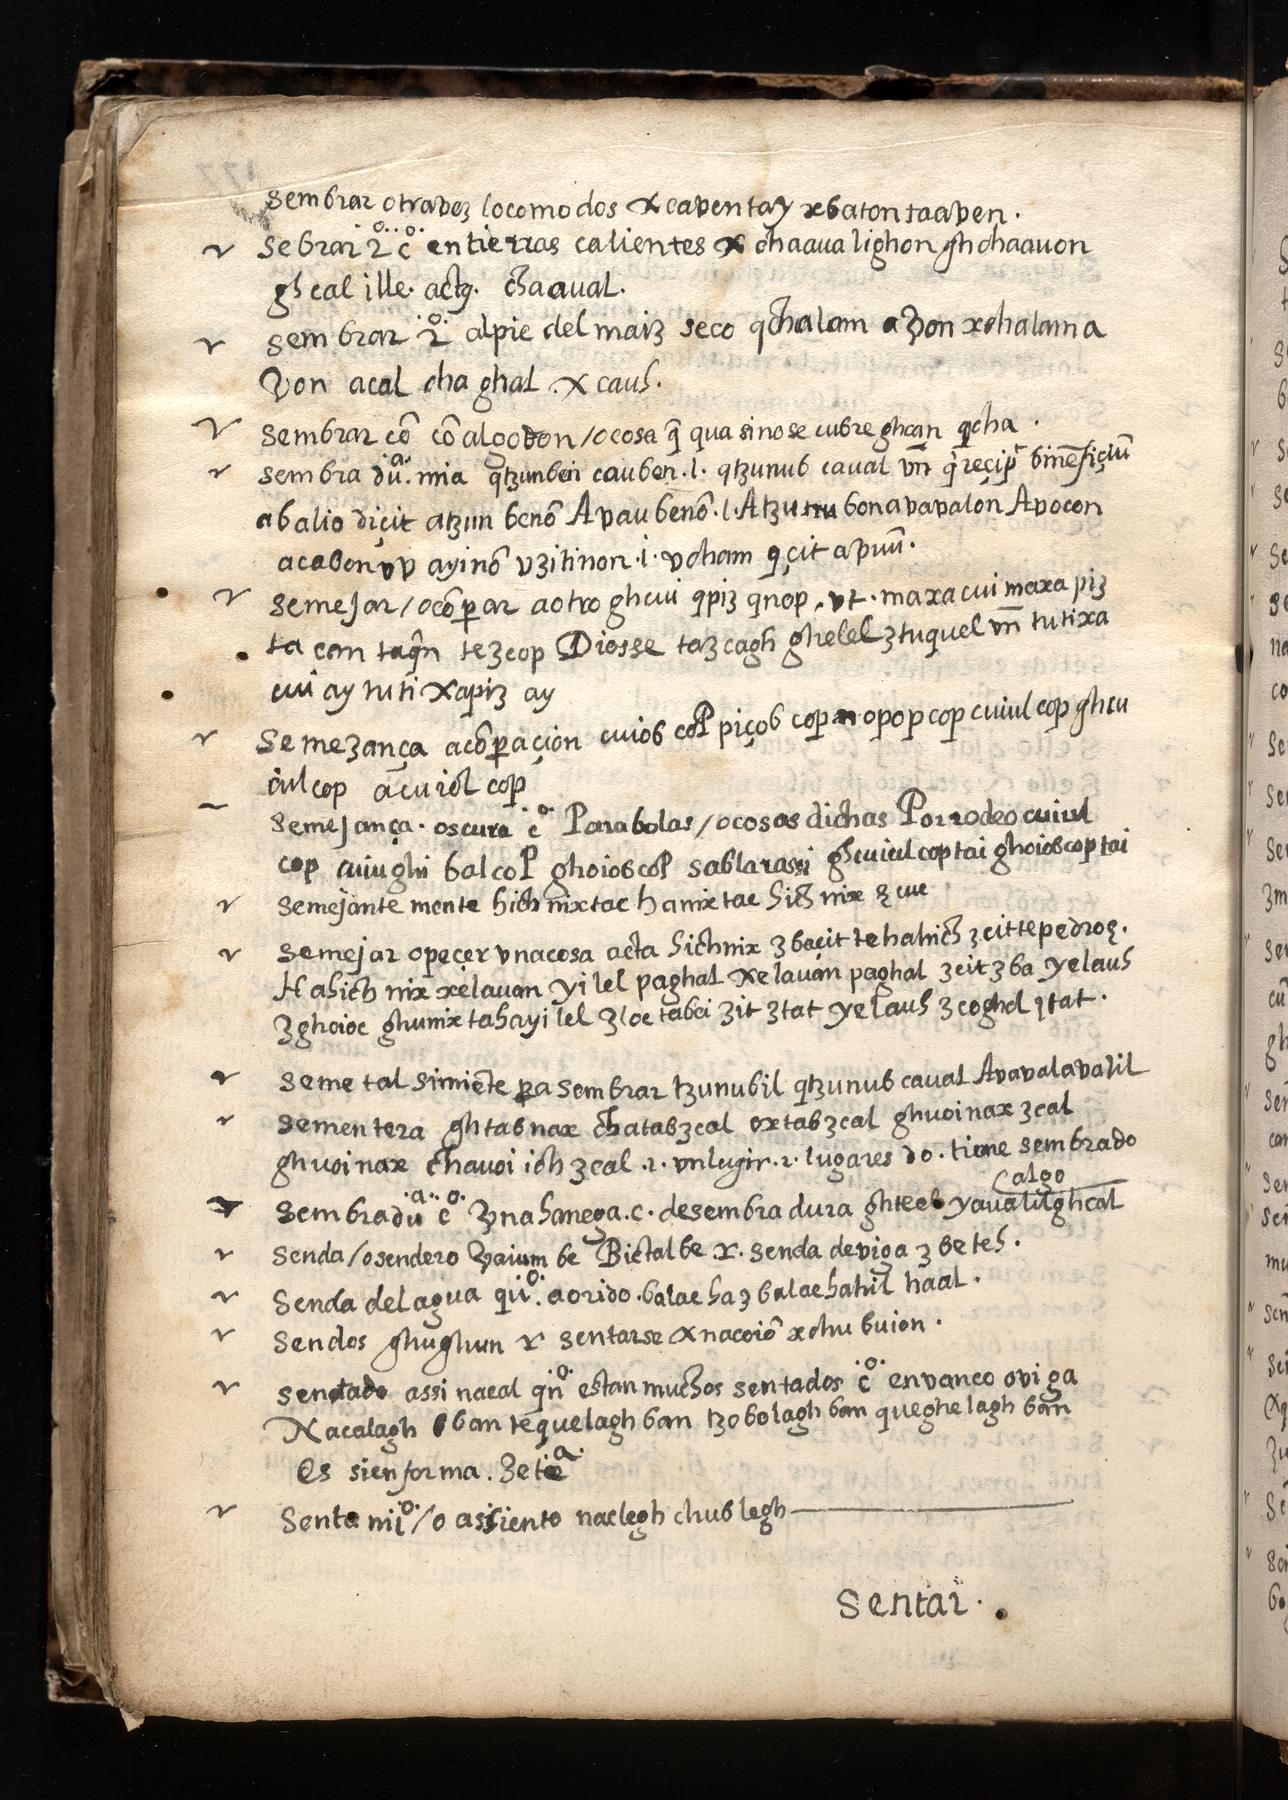 Sembrar otravez locomodos xcaven tay xbaton taaven.
Sebrar 2º. cº. en tierras calientes x chaaua lighon ghchaauon
gh cal ille. actq. chaaual.
Sembrar 2º. al pie del maiz seco qchalam azon xchalam a
zon acal cha ghal. x cauh.
Sembrar cō cō algodon / o cosa q̃ qua si no se cubre ghcan qcha.
sembra dūª. mia qtzunben cauben .l. qtzunub caual
abalio diçit atzun benō Avau benō .l. Atzunu bonavavalon Avocon
acabon vv ayinō vzitinon .i. vcham qçit avuū.
Semejar / o cōpar ao tro ghcui qpiz qnop. vt. maxa cui maxa piz
ta can taq̃n tezcop Diosse tazcagh ghelel ztuquel vn̄ tutixa
cui ay tuti xapiz ay
Semezança acōpaçion cuiob cop piçob cop opop cop cuiul cop ghcu
iul cop acuiol cop
Semejança. oscura cº. Parabolas / o cosas dichas Por rodeo cuiul
cop cuiughi bal cop ghoiob cop sablarassi ghcuiul cop tai ghoiob cop tai
Semejante mente hich nixtac hanixtac hich nix z cue
Semejar opeçer vna cosa acta hichnix zbaçit te hahich zcittepedroz.
Hahich nix xelauan yi lel paghal xelauan paghal zcit zba yelauh
zghoioc ghunix tahayi lel zloc tabci zit ztat yelauh z coghol ztat.
Seme tal simiēte pa sembrar tzunubil qtzunub caual Avavalavahil
Sementera ghtabnax chatabzcal oxtabzcal ghuoinax zcal
ghuoinax chauoi ich zcal .2. vn lugir .2. lugares do. tiene sembrado
(algo
Sembradūª. cº. Vna hanega .c. de sembra dura ghteel yaualilghcal
Senda / o sendero Vaium be Bictal be r. senda de viga z be teh.
Senda del agua quº. aorido. balae ha z balae hahil haal.
Sendos ghughun r sentarse xnacoiō xchu buion.
sentado assi nacal qnº. estan muchos sentados cº. en vanco o viga
Nacalagh ban tequelagh ban tzobolagh ban queghelagh ban
Es sien forma. Zetiēª.
Senta miº. / o assiento naclegh chublegh
Sentar.